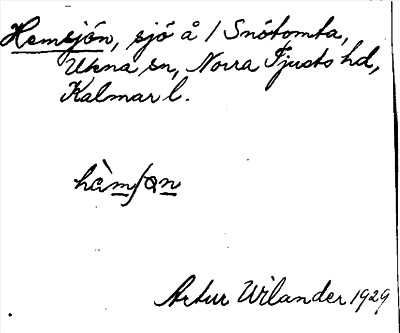 Hemsjön, sjö å 1 Snötomta,
Ukna sn, Norra Tjusts hd,
Kalmar l.
Artur Wilander 1929